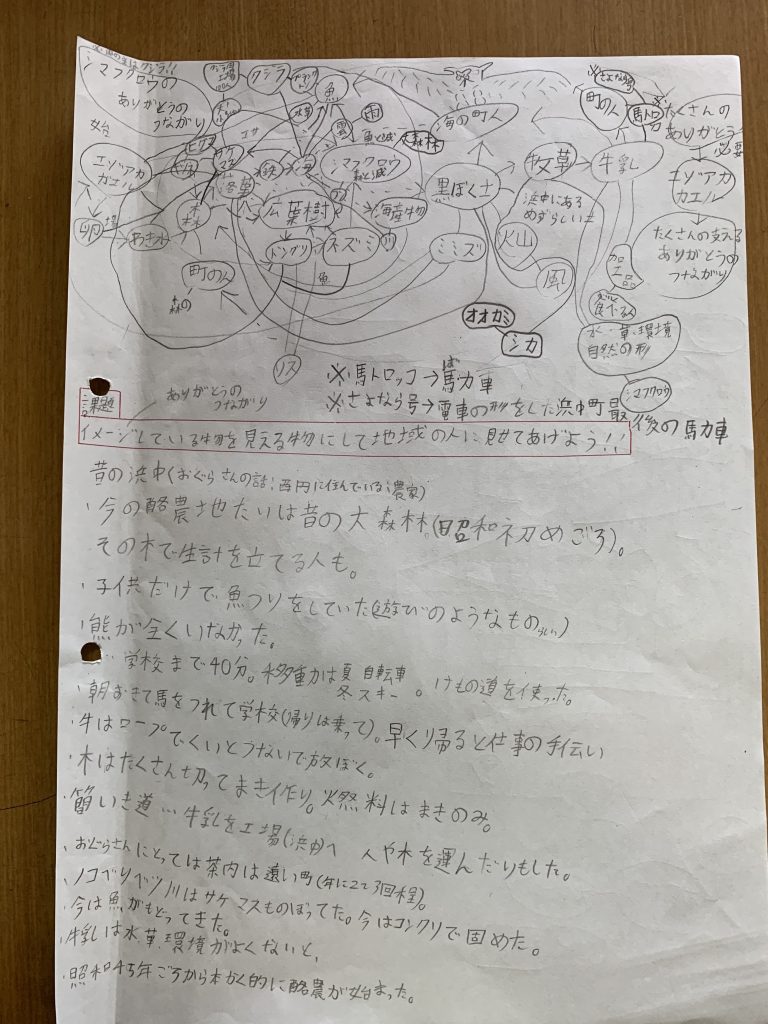 シマフクロウの
ありがとうの
つながり
クジラ
魚
水草
雨
雲
魚と森
大森林
海
鉄
サケマス
落葉
エゾアカ
ガエル
卵
わき水
森林
広葉樹
シマフクロウ
海産物
ドングリ
ネズミ
魚
町の人
森の
リス
海の町人
黒ぼく土
ミミズ
牧草
浜中にある
めずらしい土
火山
風
オオカミ
シカ
※さよなら号
町の人
馬トロ
牛乳
加工品
食べる人
水・草・環境
自然の形
たくさんの
ありがとう
必要
エゾアカ
ガエル
たくさんの支える
ありがとうの
つながり
※馬トロッコ→馬力車
ば
※さよなら号→電車の形をした浜中町最後の馬力車
シマフクロウ
課題
ありがとうの
つながり
イメージしている物を見える物にして地域の人に見せてあげよう!!
昔の浜中(おぐらさんの話:西円に住んでいる農家)
・今の酪農地たいは昔の大森林。(昭和初めごろ)。
その木で生計を立てる人も。
・子供だけで魚つりをしていた(遊びのようなものらしい)
・熊が全くいなかった。
・学校まで40分。移動は夏 自転車 冬 スキー。けもの道を使った。
・朝おきて馬をつれて学校(帰りは乗って)。早くり帰ると仕事の手伝い
・牛はロープでくいとつないで放ぼく。
・木はたくさん切ってまき作り。燃料はまきのみ。
・簡いき道…牛乳を工場(浜中)へ 人や木を運んだりもした。
・おぐらさんにとっては茶内は遠い町(年に2〜3回程)。
・ノコベリベツ川はサケマスものぼってた。今はコンクリで固めた。
・今は魚がもどってきた。
・牛乳は水、草、環境がよくないと、
・昭和45年ごろから本かく的に酪農が始まった。